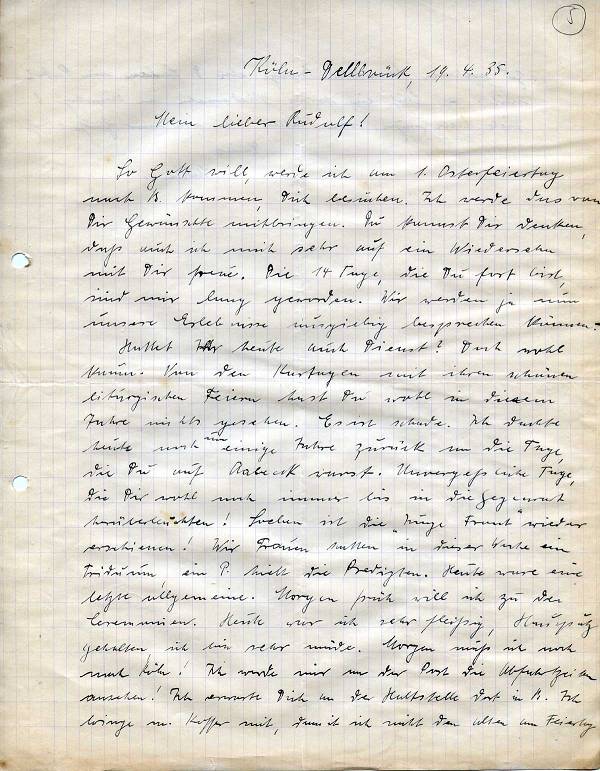 5
Köln - Dellbrück, 19. 4. 35.
Mein lieber Rudolf!
So Gott will, werde ich am 1. Osterfeiertag
nach B. kommen, Dich besuchen. Ich werde das von
Dir Gewünschte mitbringen. Du kannst Dir denken,
daß auch ich mich sehr auf ein Wiedersehn
mit Dir freue. Die 14 Tage, die Du fort bist,
sind mir lang geworden. Wir werden ja nun
unsere Erlebnisse ausgiebig besprechen können.
Hattet Ihr heute auch Dienst? Doch wohl
kaum. Von den Kartagen mit ihren schönen
liturgischen Feiern hast Du wohl in diesem
Jahre nichts gesehen. Es ist schade. Ich dachte
heute noch um einige Jahre zurück an die Tage,
die Du auf Rabeck warst. Unvergeßliche Tage,
die Dir wohl noch immer bis in die Gegenwart
herüberleuchten! Soeben ist die "Junge Front" wieder
erschienen! Wir Frauen hatten in dieser Woche ein
Triduum, ein P. hielt die Predigten. Heute war eine
letzte allgemeine. Morgen früh will ich zu den
Ceremonien. Heute war ich sehr fleißig, Hausputz
gehalten, ich bin sehr müde. Morgen muß ich noch
nach Köln! Ich werde mir an der Post die Abfahrtzeiten
ansehen! Ich erwarte Dich an der Haltstelle dort in B. Ich
bringe m. Koffer mit, damit ich nicht den alten am Feiertag